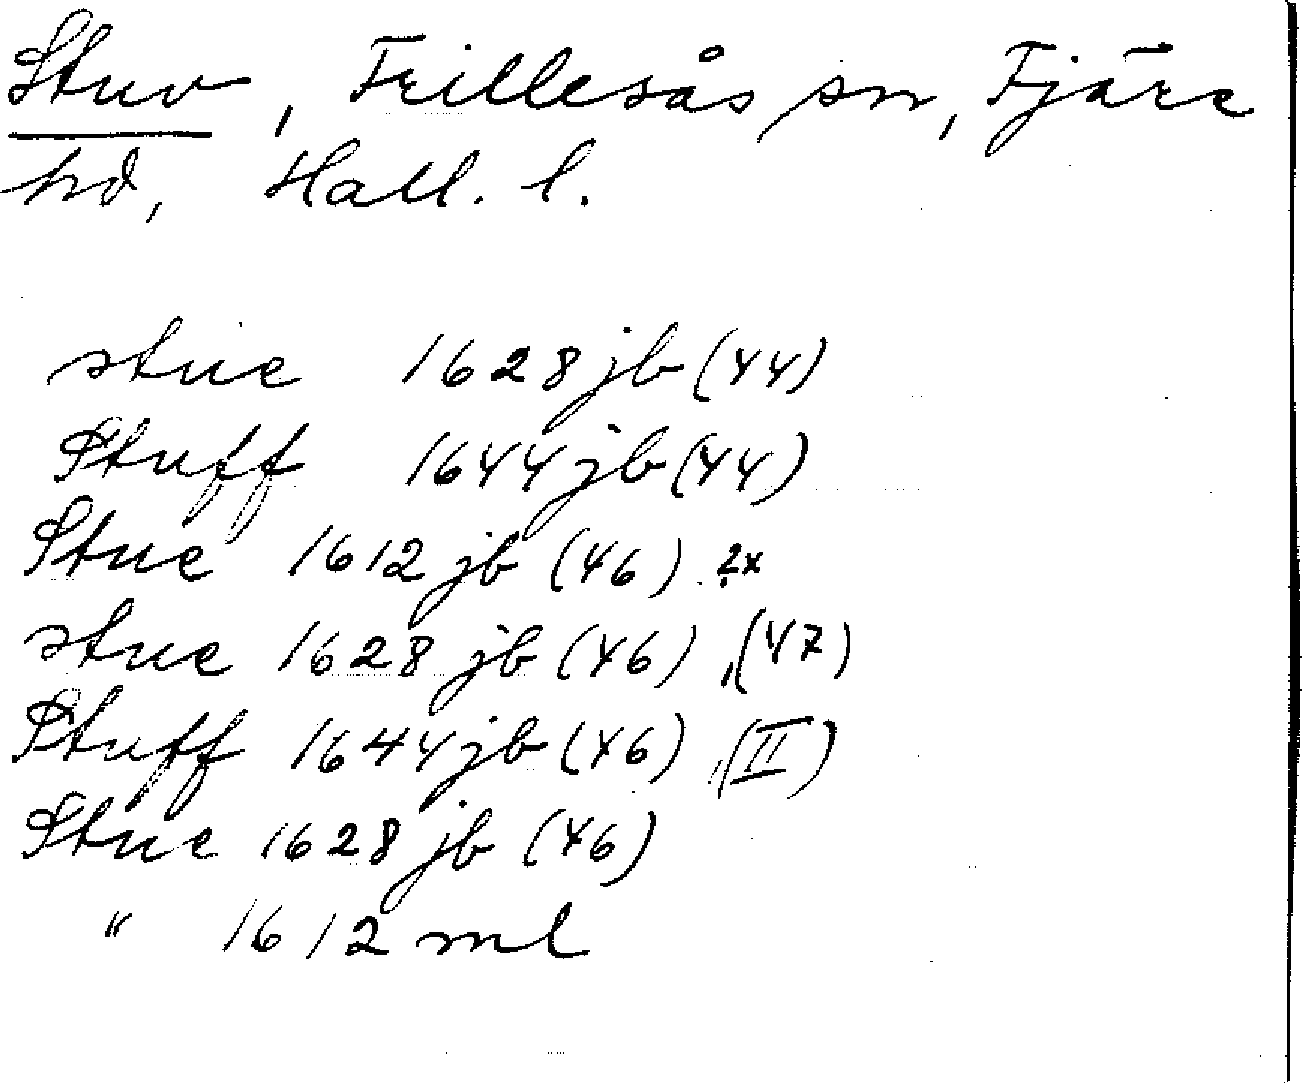 Stuv, Frillesås sn, Fjäre
hd, Hall. l.
stue 1628 jb (44)
Stuff 1644 jb (44)
Stue 1612 jb (46) 2x
stue 1628 jb (46), (47)
Stuff 1644 jb (46), (II)
Stue 1628 jb (46)
" 1612 ml